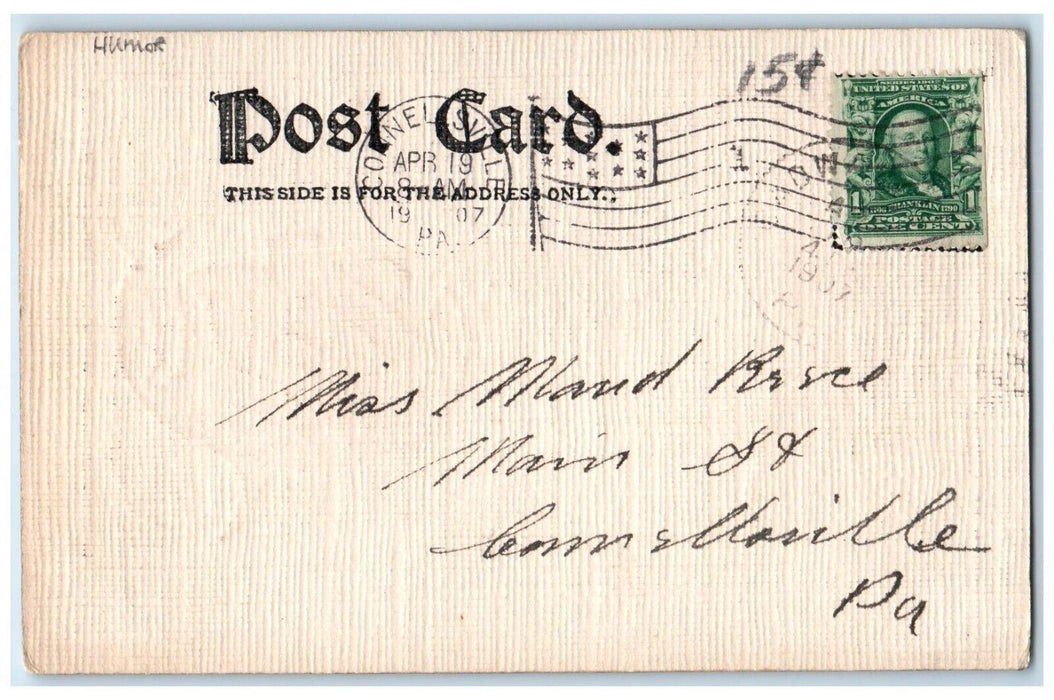 Humor
15¢
Post Card.
THIS SIDE IS FOR THE ADDRESS ONLY.
CONNELLSVILLE
APR 19
8 AM
19 07
PA.
1
SERIES 1902
UNITED STATES OF
AMERICA
1 1706 FRANKLIN 1790 1
POSTAGE
ONE CENT
1907
Miss Maud Reece
Main St
Connellsville
Pa